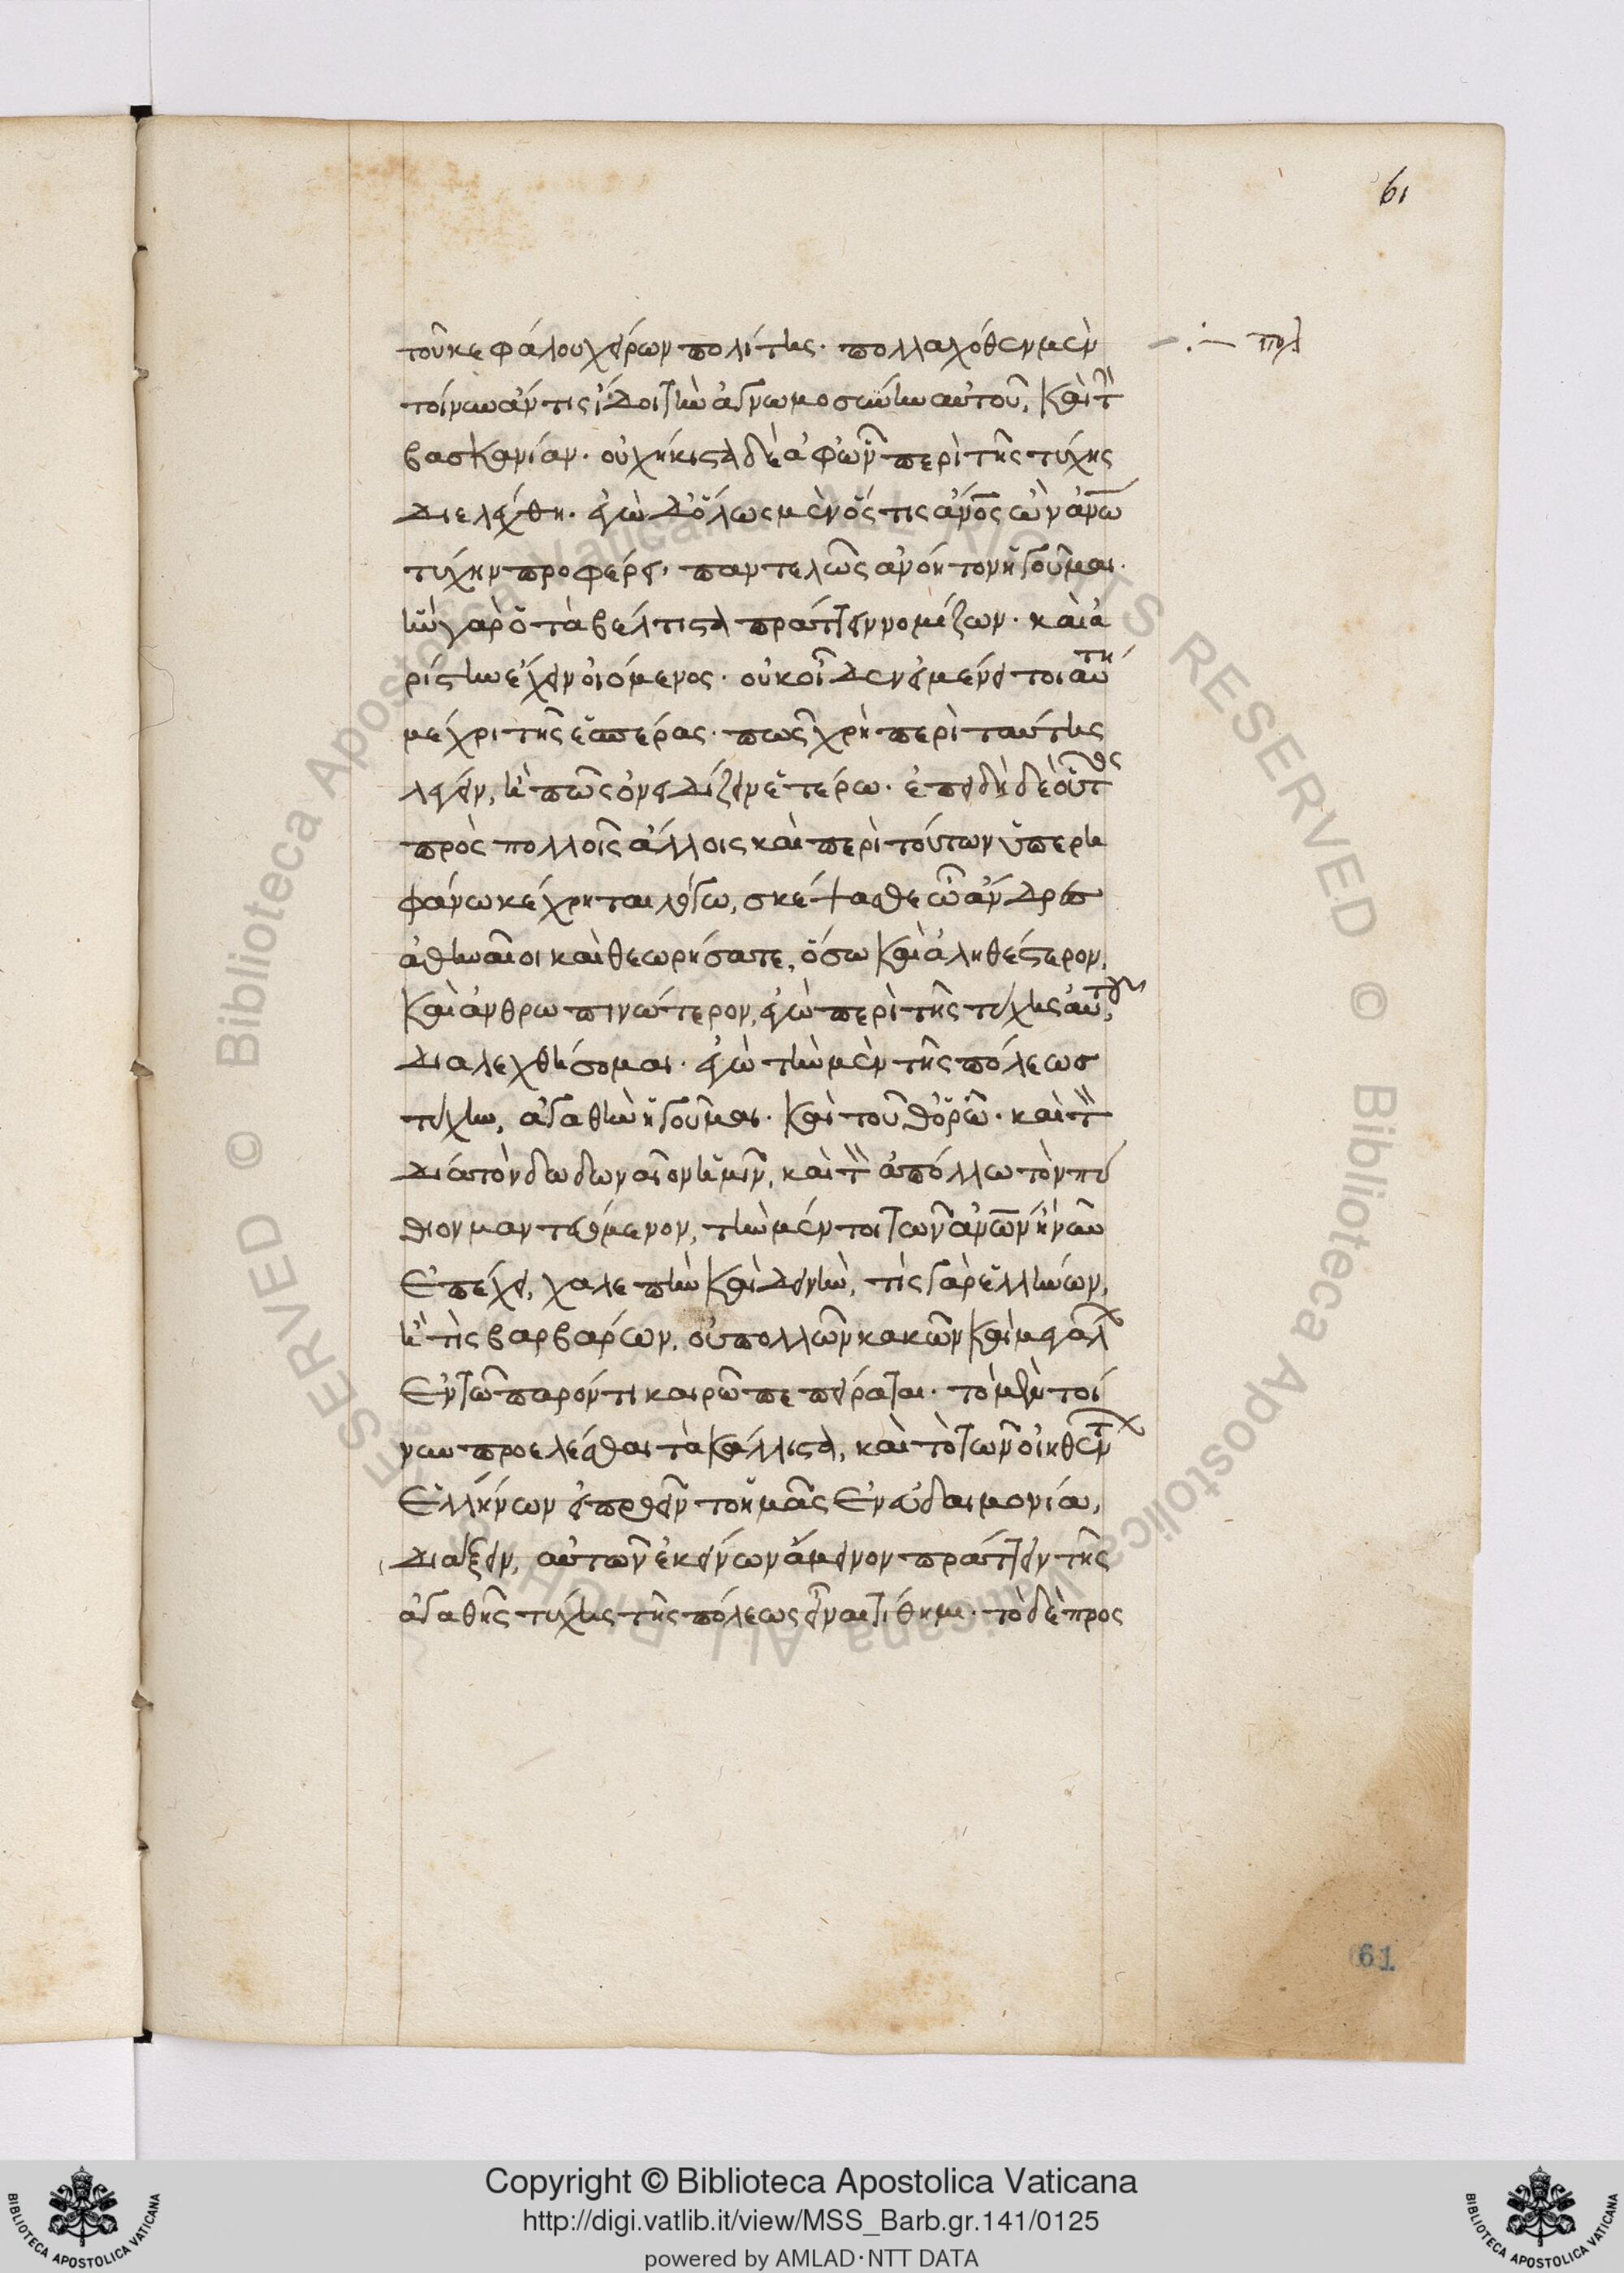 τοῦ κεφάλου χείρων πολίτης. πολλαχόθεν μὲν
τοίνυν ἄν τις ἴδοι τὴν ἀγνωμοσύνην αὐτοῦ, καὶ τ̀̀
βασκανίαν. οὐχ ἥκιστα δὲ ἀφ' ὧν περὶ τῆς τύχης
διελέχθη. ἐγὼ δ' ὅλως μὲν ὅς τις ἄν̅ο̅ς ὢν ἀν̅ω̅
τύχην προφέρει, παντελῶς ἀνόητον ἡγοῦμαι.
ἣν γὰρ ὁ τὰ βέλτιστα πράττειν νομίζων. καὶ ἀ
ρίστην ἔχειν οἰόμενος. οὐκ οἶδεν εἰ μενεῖ τοιαύτη
μέχρι τῆς ἑσπέρας. πῶς χρὴ περὶ ταύτης
λέγειν, ἢ πῶς ὀνειδίζειν ἑτέρω. ἐπειδὴ δὲ οὗτος
πρὸς πολλοῖς ἄλλοις καὶ περὶ τούτων ὑπερη
φάνω κέχρηται λόγω, σκέψασθε ὦ ἄνδρες
ἀθηναῖοι καὶ θεωρήσατε, ὅσω καὶ ἀληθέστερον,
καὶ ἀνθρωπινώτερον, ἐγὼ περὶ τῆς τύχης
διαλεχθήσομαι. ἐγὼ τὴν μὲν τῆς πόλεως
τύχην, ἀγαθὴν ἡγοῦμαι. καὶ τοῦθ' ὁρῶ. καὶ τ̀̀
δία τὸν δωδωναῖον ἡμῖν, καὶ τ̀̀ ἀπόλλω τὸν πύ
θιον μαντευόμενον, τὴν μέντοι τῶν ἀν̅ω̅ν ἣ νῦν
ἐπέχει, χαλεπὴν καὶ δεινὴν, τίς γὰρ ἑλλήνων,
ἢ τίς βαρβάρων, οὐ πολλῶν κακῶν καὶ μεγάλ
ἐν τῶ παρόντι καιρῶ πεπείραται. τὸ μὲν τοί
νυν προελέσθαι τὰ κάλλιστα, καὶ τὸ τῶν οἰηθέντ
ἑλλήνων εἰ πρόοινθ' ἡμᾶς ἐν εὐδαιμονία,
διάξειν, αὐτῶν ἐκείνων ἄμεινον πράττειν τῆς
ἀγαθῆς τύχης τῆς πόλεως εἶναι τίθημι. τὸ δὲ προς
61
61
Copyright © Biblioteca Apostolica Vaticana
http://digi.vatlib.it/view/MSS_Barb.gr.141/0125
powered by AMLAD·NTT DATA